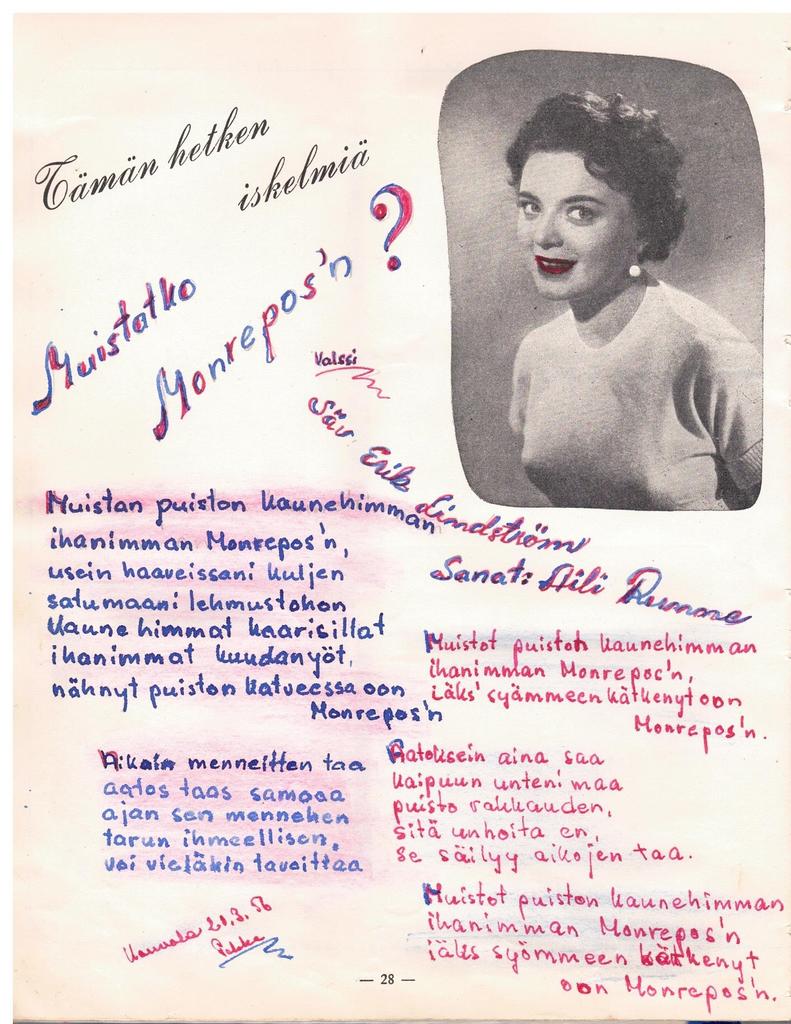 Tämän hetken
iskelmiä
Muistatko
Monrepos'n ?
Valssi
Säv. Erik Lindström
Sanat: Aili Runne
Muistan puiston kaunehimman
ihanimman Monrepos'n,
usein haaveissani kuljen
satumaani lehmustohon
Kaunehimmat kaarisillat
ihanimmat kuudanyöt,
nähnyt puiston katveessa oon
Monrepos'n
Aikain menneitten taa
aatos taas samoaa
ajan sen mennehen
tarun ihmeellisen,
voi vieläkin tavoittaa
Muistot puiston kaunehimman
ihanimman Monrepos'n,
iäks' syämmeen kätkenyt oon
Monrepos'n.
Aatoksein aina saa
kaipuun unteni maa
puisto rakkauden,
sitä unhoita en,
se säilyy aikojen taa.
Muistot puiston kaunehimman
ihanimman Monrepos'n
iäks syömmeen kätkenyt
oon Monrepos'n.
Kouvola 21.3.56
Pekka
— 28 —